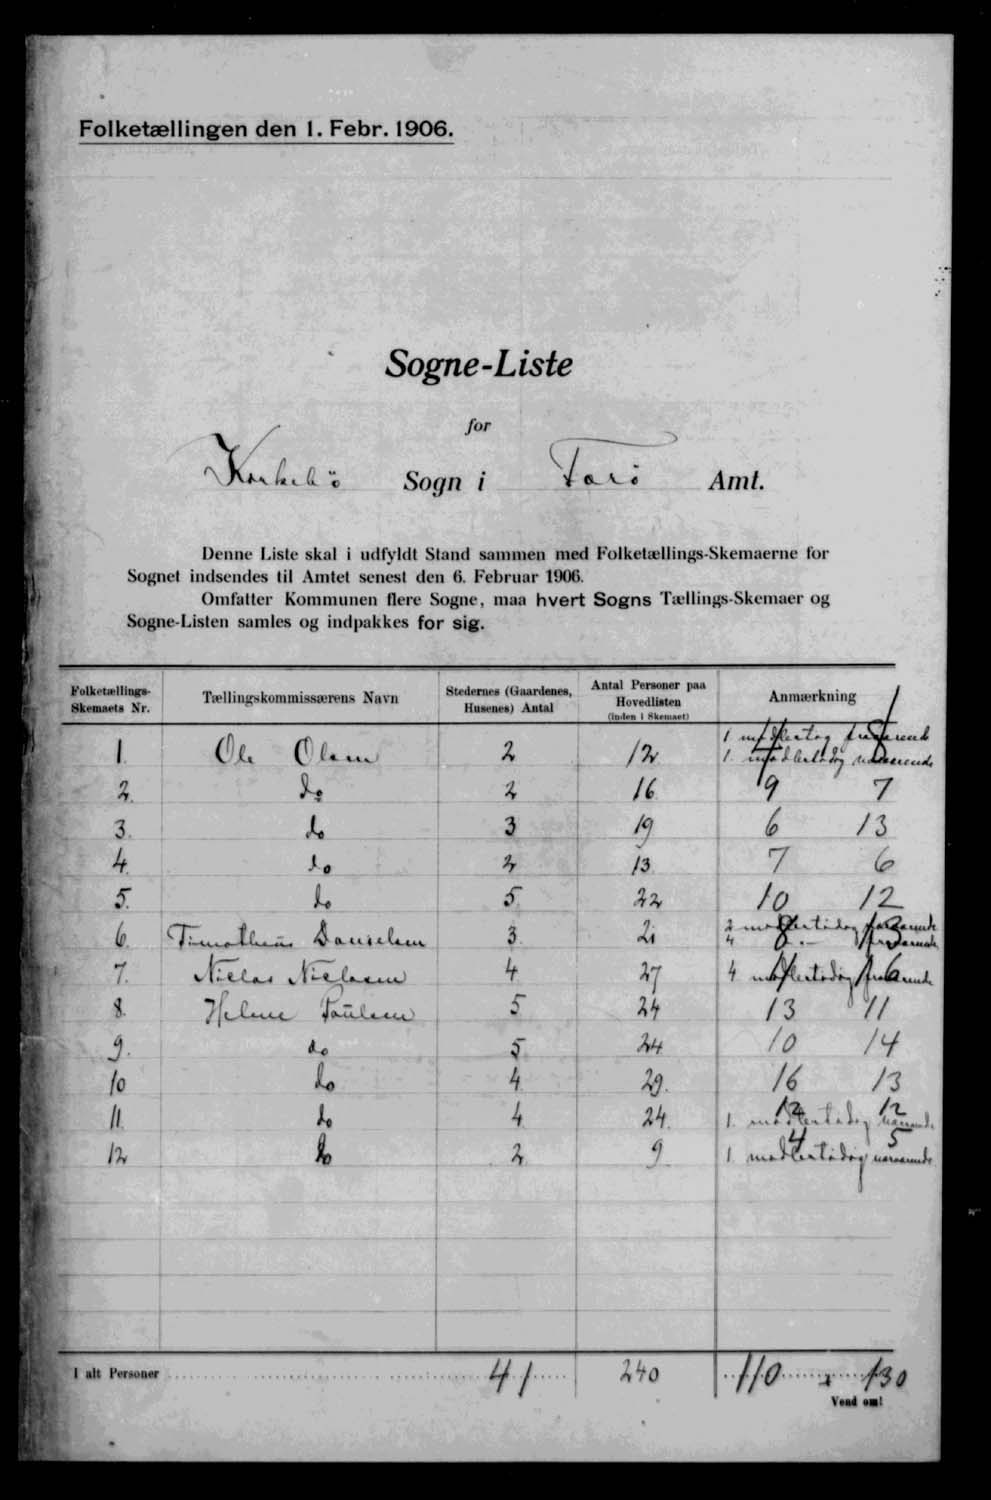 Folketællingen den 1. Febr. 1906.
Sogne-Liste
for
Sogn i Farö Amt.
Denne Liste skal i udfyldt Stand sammen med Folketællings-Skemaerne for
Sognet indsendes til Amtet senest den 6. Februar 1906.
Omfatter Kommunen flere Sogne, maa hvert Sogns Tællings-Skemaer og
Sogne-Listen samles og indpakkes for sig.
Folketællings-Skemaets Nr. Tællingskommissærens Navn Stedernes (Gaardenes, Husenes) Antal Antal Personer paa Hovedlisten (inden i Skemaet) Anmærkning
1. Ole Olsen 2 12 1 midlertdg fraværende
1. midlertidig nærværende
2. do 2 16 9 7
3. do 3 19 6 13
4. do 2 13 7 6
5. do 5 22 10 12
6. 3 21 8 13
7. Niclas Niclasen 4 27 4 midlertidig fraværende 11 16
8. Helene Paulsen 5 24 13 11
9. do 5 24 10 14
10 do 4 29. 16 13
11. do 4 24. 1. midlertidig 12 12
12 do 2 9. 1. midlertidig nærværende 4 5
I alt Personer 41 240 110 130
Vend om!